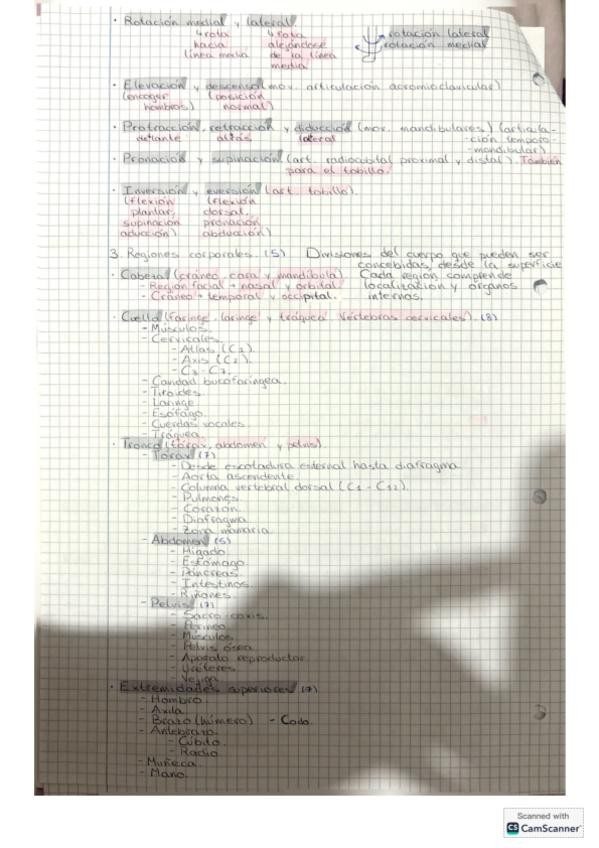 · Rotación medial y lateral
↳ rota ↳ rota
hacia alejándose
línea media de la línea
media
rotación lateral
rotación medial
· Elevación y descenso (mov. articulación acromioclavicular)
(encoger (posición
hombros) normal)
· Protracción, retracción y diducción (mov. mandibulares) (articula-
delante atrás lateral -ción temporo-
-mandibular)
· Pronación y supinación (art. radiocubital proximal y distal). También
para el tobillo.
· Inversión y eversión (art. tobillo).
(flexión (flexión
plantar, dorsal,
supinación pronación
aducción) abducción)
3. Regiones corporales. (5) Divisiones del cuerpo que pueden ser
concebidas, desde la superficie
· Cabeza (cráneo, cara y mandíbula) Cada región comprende
- Región facial → nasal y orbital. localización y órganos
- Cráneo → temporal y occipital. internos.
· Cuello (faringe, laringe y tráquea. Vértebras cervicales). (8)
- Músculos.
- Cervicales
- Atlas (C1).
- Axis (C2).
- C3 - C7.
- Cavidad bucofaríngea.
- Tiroides.
- Laringe
- Esófago.
- Cuerdas vocales
- Tráquea
· Tronco (tórax, abdomen y pelvis).
- Tórax (7)
- Desde escotadura esternal hasta diafragma
- Aorta ascendente
- Columna vertebral dorsal (C1 - C12).
- Pulmones
- Corazón
- Diafragma
- Zona mamaria
- Abdomen (5)
- Hígado
- Estómago
- Páncreas
- Intestinos
- Riñones
- Pelvis (7)
- Sacro-coxis.
- Perineo
- Músculos
- Pelvis ósea
- Aparato reproductor
- Uréteres
- Vejiga
· Extremidades superiores (7)
- Hombro
- Axila
- Brazo (húmero) - Codo.
- Antebrazo
- Cúbito.
- Radio
- Muñeca
- Mano.
Scanned with
CS CamScanner